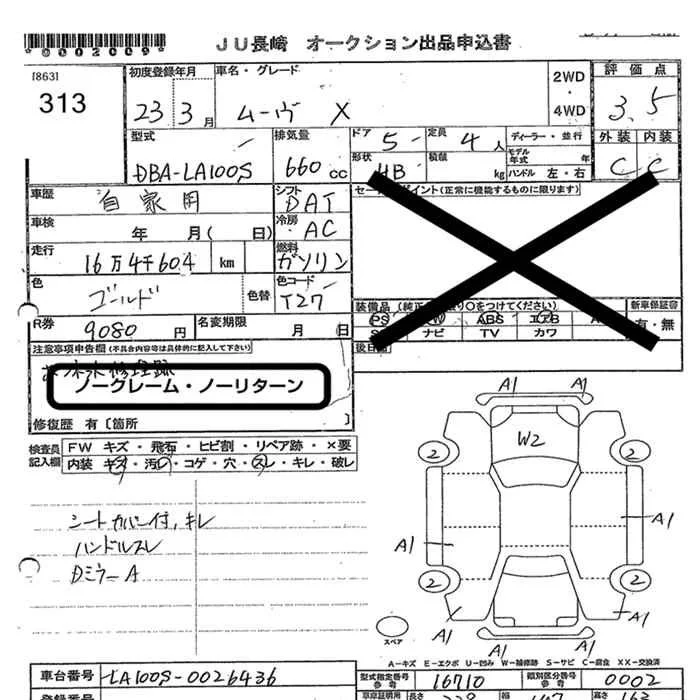 *0002009*
JU長崎 オークション出品申込書
[863]
313
初度登録年月
23 3月
車名・グレード
ムーヴ X
2WD
・
4WD
評価点
3.5
型式
DBA-LA100S
排気量
660 CC
ドア 5
定員 4人
ディーラー・並行
形状 HB
積載 kg
モデル年式 年
ハンドル 左・右
外装 内装
C C
車歴 自家用
シフト DAT
車検 年 月( 日)
冷房 AC
走行 16万4千604 km
燃料 ガソリン
色 ゴールド
色替
色コード T27
R券 9080 円
名変期限 月 日
注意事項申告欄(不具合内容等は具体的に記入して下さい)
ノークレーム・ノーリターン
修復歴 有〔箇所 〕
イント(正常に機能するものに限ります)
装備品(純正
りOをつけてください)
新車保証書
有・無
PS
ABS エアB
ナビ TV カワ
後日
検査員記入欄
FW キズ・飛石・ヒビ割・リペア跡・×要
内装 キズ・汚レ・コゲ・穴・スレ・キレ・破レ
シートカバー付,キレ
ハンドルスレ
DミラーA
A1 A1
W2
2 2
A1 A1
2 2
A1 A1
A1 A1
スペア
A-キズ E-エクボ U-凹み W-補修跡 S-サビ C-腐食 XX-交換済
車台番号 LA100S-0026436
型式指定番号 参考 16710
類別区分番号 参考 0002